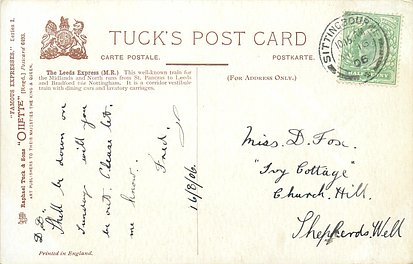 TUCK'S POST CARD
CARTE POSTALE.
POSTKARTE.
The Leeds Express (M.R.) This well-known train for
the Midlands and North runs from St. Pancras to Leeds
and Bradford via Nottingham. It is a corridor vestibule
train with dining cars and lavatory carriages.
(FOR ADDRESS ONLY.)
"FAMOUS EXPRESSES." Series I.
Raphael Tuck & Sons' "OILETTE" [Regd.] Postcard
ART PUBLISHERS TO THEIR MAJESTIES THE KING & QUEEN.
Printed in England.
SITTINGBOURNE
06
HALFPENNY
D.D.
Shall be down on
Sunday will you
be out. Please let
me know.
Fred.
16/8/06.
Miss. D. Fox.
"Ivy Cottage"
Church. Hill.
Shepherds. Well